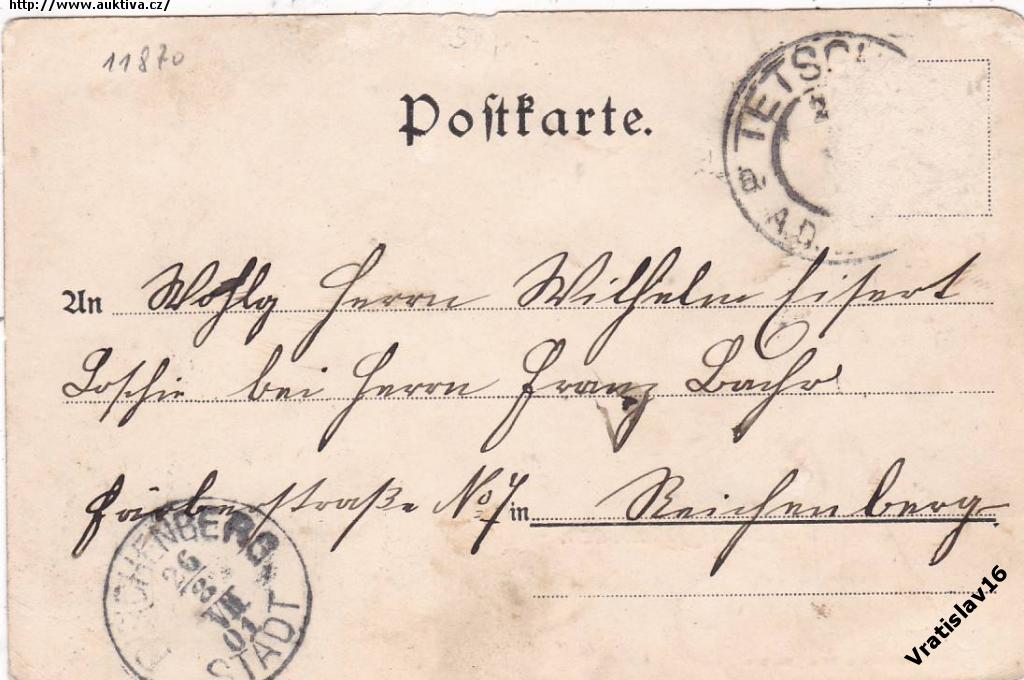 http://www.auktiva.cz/
11870
Postkarte.
TETSCH
a A.D.
An Wohlg Herrn Wilhelm Eisert
bei Herrn Franz Bachr
Färberstraße No 7 in Reichenberg
REICHENBERG STADT
26
8
VII
01
Vratislav16